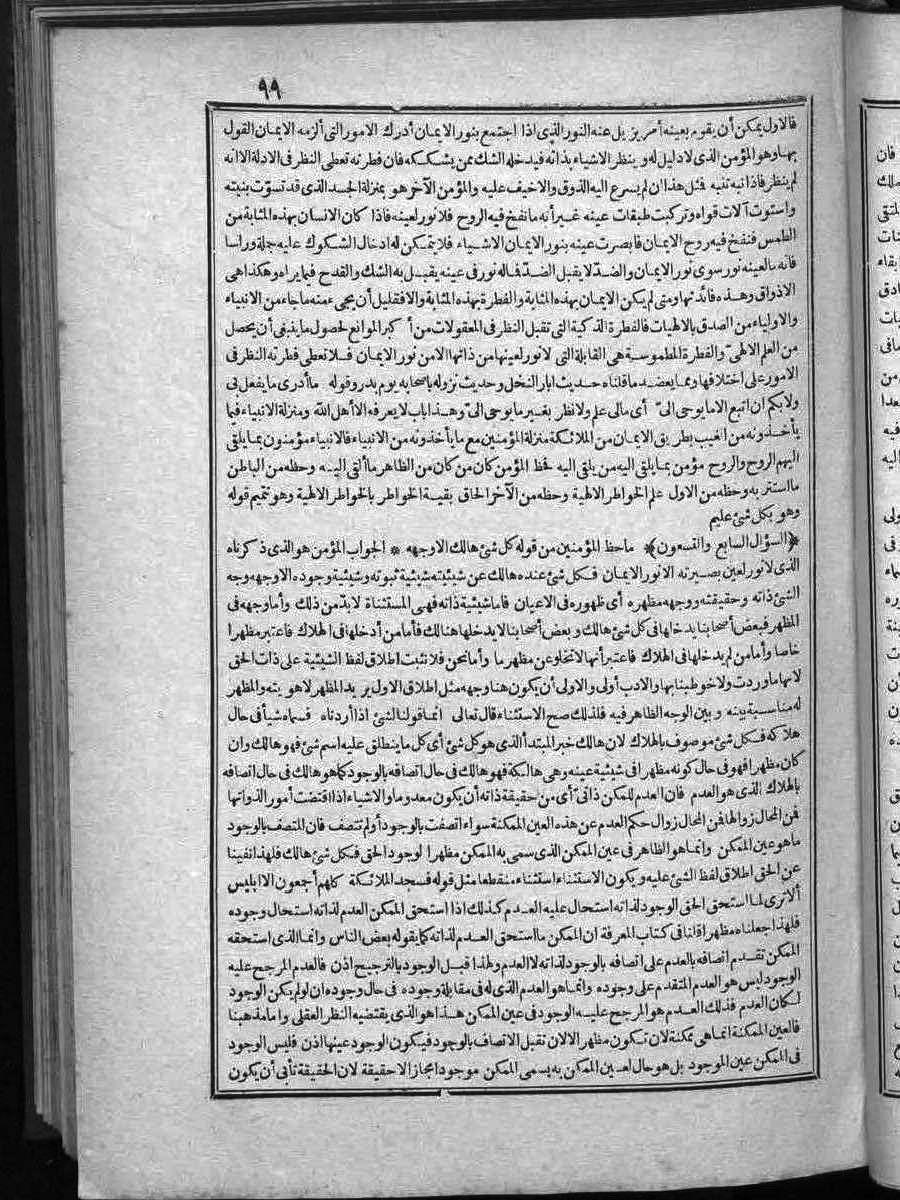 ٩٩
فالاول يمكن أن يقوم بعينه أمر يزيل عنه النور الذى اذا اجتمع بنور الايمان أدرك الامور التى ألزمه الايمان القول
بها وهو المؤمن الذى لا دليل له و ينظر الاشياء بذاته فيدخله الشك ممن يشككه فان فطرته تعطى النظر فى الادلة الا انه
لم ينظر فاذا نبه تنبه فمثل هذا ان لم يسرع اليه الذوق والا خيف عليه والمؤمن الآخر هو بمنزلة الجسد الذى قد تسوّت بنيته
واستوت آلات قواه وتركبت طبقات عينه غير أنه ما نفخ فيه الروح فلا نور لعينه فاذا كان الانسان بهذه المثابة من
الطمس فنفخ فيه روح الايمان فابصرت عينه بنور الايمان الاشياء فلا يتمكن له ادخال الشكوك عليه جملة وراسا
فانه ما لعينه نور سوى نور الايمان والضدّ لا يقبل الضدّ فما له نور فى عينه يقبل به الشك والقدح فيما يراه وهكذا هى
الاذواق وهذه فائدتها ومتى لم يكن الايمان بهذه المثابة والفطرة بهذه المثابة والا فقليل أن يجىء منه ما جاء من الانبياء
والاولياء من الصدق بالالهيات فالفطرة الذكية التى تقبل النظر فى المعقولات من أكبر الموانع لحصول ما ينبغى أن يحصل
من العلم الالهىّ والفطرة المطموسة هى القابلة التى لا نور لعينها من ذاتها الا من نور الايمان فلا تعطى فطرته النظر فى
الامور على اختلافها ومما يعضد ما قلناه حديث ابار النخل وحديث نزوله باصحابه يوم بدر وقوله ما أدرى ما يفعل بى
ولا بكم ان اتبع الا ما يوحى الىّ أى مالى علم ولا نظر بغير ما يوحى الىّ وهذا باب لا يعرفه الا أهل الله ومنزلة الانبياء فيما
يأخذونه من الغيب بطريق الايمان من الملائكة منزلة المؤمنين مع ما يأخذونه من الانبياء فالانبياء مؤمنون بما يلقى
اليهم الروح والروح مؤمن بما يلقى اليه من يلقى اليه فحظ المؤمن كان من كان من الظاهر ما ألقى اليه وحظه من الباطن
ما استتر به وحظه من الاول علم الخواطر الالهية وحظه من الآخر الحاق بقية الخواطر بالخواطر الالهية وهو تتميم قوله
وهو بكل شئ عليم
﴿السؤال السابع والتسعون﴾ ما حظ المؤمنين من قوله كل شئ هالك الا وجهه * الجواب المؤمن هو الذى ذكرناه
الذى لا نور لعين بصيرته الا نور الايمان فكل شئ عنده هالك عن شيئيته شيئية ثبوته وشيئية وجوده الا وجهه وجه
الشئ ذاته وحقيقته ووجهه مظهره أى ظهوره فى الاعيان فاما شيئية ذاته فهى المستثناة لا بدّ من ذلك وأما وجهه فى
المظهر فبعض أصحابنا يدخلها فى كل شئ هالك و بعض أصحابنا لا يدخلها هنالك فأما من أدخلها فى الهلاك فاعتبر مظهرا
خاصا وأما من لم يدخلها فى الهلاك فاعتبر أنها لا تخلو عن مظهر ما وأما نحن فلا نثبت اطلاق لفظ الشيئية على ذات الحق
لانها ما وردت ولا خوطبنا بها والادب أولى والاولى أن يكون هنا وجهه مثل اطلاق الاول يريد المظهر لا هويته والمظهر
له مناسبة بينه و بين الوجه الظاهر فيه فلذلك صح الاستثناء قال تعالى انما قولنا لشئ اذا أردناه فسماه شيأ فى حال
هلاكه فكل شئ موصوف بالهلاك لان هالك خبر المبتدأ الذى هو كل شئ أى كل ما ينطلق عليه اسم شئ فهو هالك وان
كان مظهرا فهو فى حال كونه مظهرا فى شيئية عينه وهى هالكة فهو هالك فى حال اتصافه بالوجود كما هو هالك فى حال اتصافه
بالهلاك الذى هو العدم فان العدم للممكن ذاتىّ أى من حقيقة ذاته أن يكون معدوما والاشياء اذا اقتضت أمورا لذواتها
فمن المحال زوالها فمن المحال زوال حكم العدم عن هذه العين الممكنة سواء اتصفت بالوجود أو لم تتصف فان المتصف بالوجود
ما هو عين الممكن وانما هو الظاهر فى عين الممكن الذى سمى به الممكن مظهرا لوجود الحق فكل شئ هالك فلهذا نفينا
عن الحق اطلاق لفظ الشئ عليه و يكون الاستثناء استثناء منقطعا مثل قوله فسجد الملائكة كلهم أجمعون الا ابليس
ألا ترى لما استحق الحق الوجود لذاته استحال عليه العدم كذلك اذا استحق الممكن العدم لذاته استحال وجوده
فلهذا جعلناه مظهرا قلنا فى كتاب المعرفة ان الممكن ما استحق العدم لذاته كما يقوله بعض الناس وانما الذى استحقه
الممكن تقدم اتصافه بالعدم على اتصافه بالوجود لذاته لا العدم ولهذا قبل الوجود بالترجيح اذن فالعدم المرجح عليه
الوجود ليس هو العدم المتقدم على وجوده وانما هو العدم الذى له فى مقابلة وجوده فى حال وجوده ان لو لم يكن الوجود
لكان العدم فذلك العدم هو المرجح عليه الوجود فى عين الممكن هذا هو الذى يقتضيه النظر العقلى واما مذهبنا
فالعين الممكنة انما هى ممكنة لان تكون مظهرا لا لان تقبل الاتصاف بالوجود فيكون الوجود عينها اذن فليس الوجود
فى الممكن عين الموجود بل هو حال لعين الممكن به يسمى الممكن موجودا مجازا لا حقيقة لان الحقيقة تأبى أن يكون